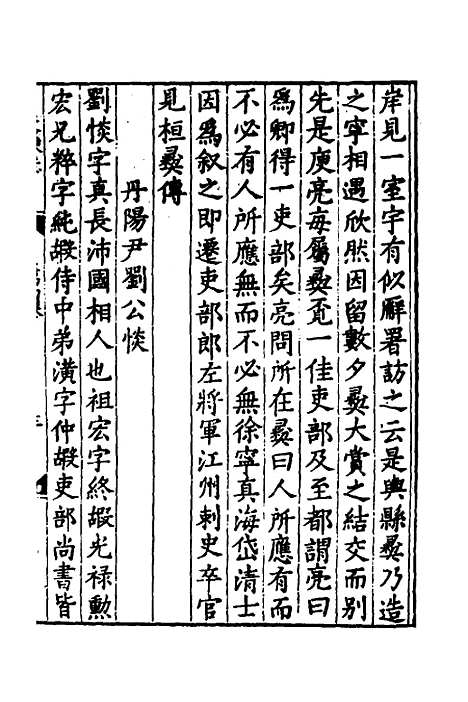 岸見一室宇有似廨署訪之云是輿縣彝乃造
之寧相遇欣然因留數夕彝大賞之結交而别
先是庾亮每屬彝覓一佳吏部及至都謂亮曰
為卿得一吏部矣亮問所在彝曰人所應有而
不必有人所應無而不必無徐寧真海岱清士
因為叙之即遷吏部郎左將軍江州刺史卒官
見桓彝傳
丹陽尹劉公惔
劉惔字真長沛國相人也祖宏字終嘏光禄勲
宏兄粹字純嘏侍中弟潢字仲嘏吏部尚書皆